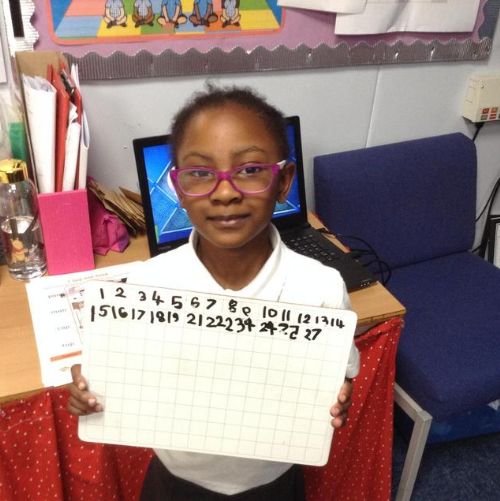 1 2 3 4 5 6 7 8 9 10 11 12 13 14
15 16 17 18 19 21 22 23 4 24 25 27